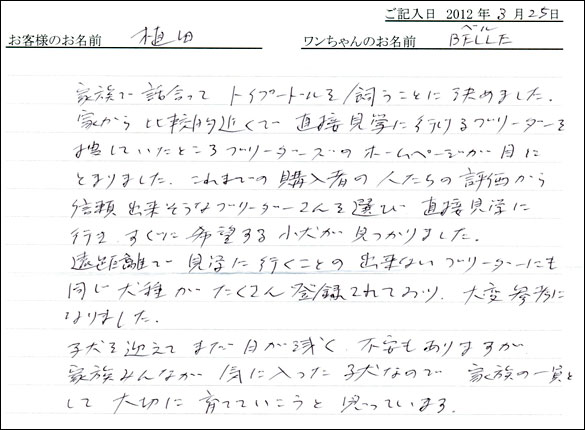 ご記入日 2012年3月25日
お客様のお名前 植田 ワンちゃんのお名前 ベル BELLE
家族で話合って トイプードルを飼うことに決めました。
家から比較的近くで 直接見学に行けるブリーダーを
捜していたところ ブリーダーズのホームページが目に
とまりました。これまでの購入者の人たちの評価から
信頼出来そうなブリーダーさんを選び 直接見学に
行き、すぐに希望する小犬が見つかりました。
遠距離で見学に行くことの出来ないブリーダーにも
同じ犬種がたくさん登録されており、大変参考に
なりました。
子犬を迎えてまだ日が浅く、不安もありますが
家族みんなが気に入った子犬なので 家族の一員と
して大切に育てていこうと思っています。